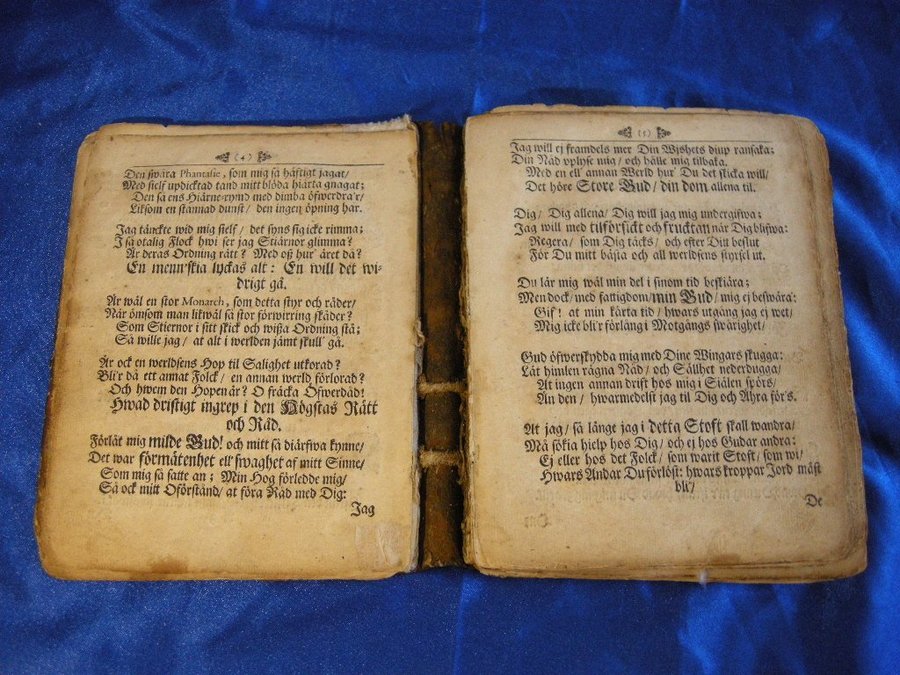 (4)
Den swåra Phantasie, som mig så häftigt jagat/
Med sielf updicktad tand mitt blöda hiärta gnagat;
Den så ens Hiärne-rymd med dimba öfwerdra'r/
Liksom en skämnad dunst/ den ingen öpning har.
Jag tänckte wid mig sielf/ det syns sig icke rimma;
I så otalig Flock hwi ser jag Stiärnor glimma?
Är deras Ordning rätt? Med oß hur' äret då?
En menn'skia lyckas alt: En will det wi-
drigt gå.
Är wäl en stor Monarch, som detta styr och råder/
När ömsom man likwäl så stor förwirring skåder?
Som Stiernor i sitt skick och wißa Ordning stå;
Så wille jag/ at alt i werlden jämt skull' gå.
Är ock en werldsens Hop til Salighet utkorad?
Bli'r då ett annat Folck/ en annan werld förlorad?
Och hwem den Hopen är? O fräcka Öfwerdåd!
Hwad dristigt ingrep i den Högstas Rätt
och Råd.
Förlåt mig milde Gud! och mitt så diärfwa kynne/
Det war förmätenhet ell' swaghet af mitt Sinne/
Som mig så satte an; Min Hog förledde mig/
Så ock mitt Oförstånd/ at föra Råd med Dig:
Jag
(5)
Jag will ej framdels mer Din Wjshets diup ransaka;
Din Nåd uplyse mig/ och hålle mig tilbaka.
Med en ell' annan Werld hur' Du det skicka will/
Det höre Store Gud/ din dom allena til.
Dig/ Dig allena/ Dig will jag mig undergifwa;
Jag will med tilförsicht och fruchtan när Dig blifwa:
Regera/ som Dig täcks/ och efter Ditt beslut
För Du mitt bästa och all werldsens styrsel ut.
Du lär mig wäl min del i sinom tid beskiära;
Men dock/ med fattigdom/ min Gud/ mig ej beswära:
Gif! at min kårta tid/ hwars utgång jag ej wet/
Mig icke bli'r förlång i Motgångs swårighet/
Gud öfwerskydda mig med Dine Wingars skugga:
Låt himlen rägna Nåd/ och Sällhet nederdugga/
At ingen annan drift hos mig i Siälen spörs/
Än den/ hwarmedelst jag til Dig och Ähra för's.
At jag/ så länge jag i detta Stoft skall wandra/
Må sökia hielp hos Dig/ och ej hos Gudar andra:
Ej eller hos det Folck/ som warit Stoft/ som wi/
Hwars Andar Du förlöst: hwars kroppar Jord måst
bli'/
De